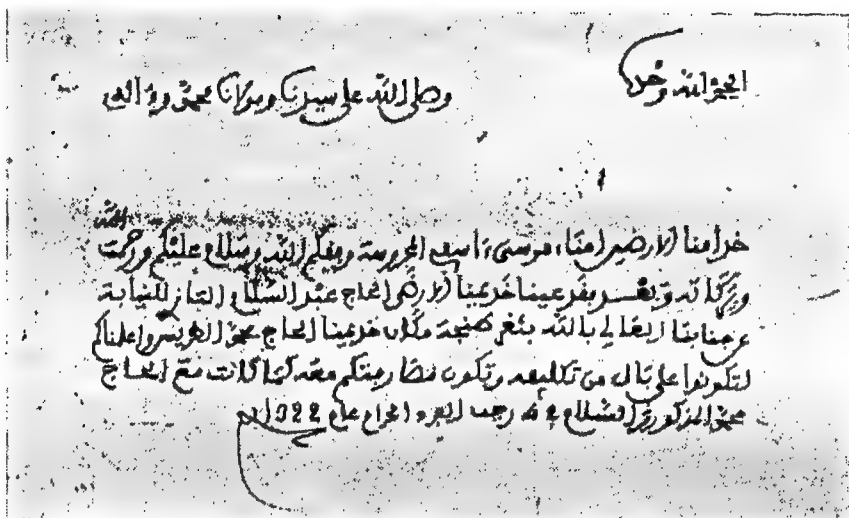 الحمد لله وحده
وصلى الله على سيدنا ومولانا محمد وآله
خدامنا الارضين امناء مرسى اسفي المحروسة وفقكم الله وسلام عليكم ورحمت الله
وبركاته وبعد فقد عينا خديمنا الارضى الحاج عبد السلام التازي للنيابة
عن جنابنا العالي بالله بثغر طنجة مكان خديمنا الحاج محمد الطريس واعلمناكم
لتكونوا على بال من تكليفه وتكون مخاربتكم معه كما كانت مع الحاج
محمد المذكور والسلام في رجب الفرد الحرام عام 1322